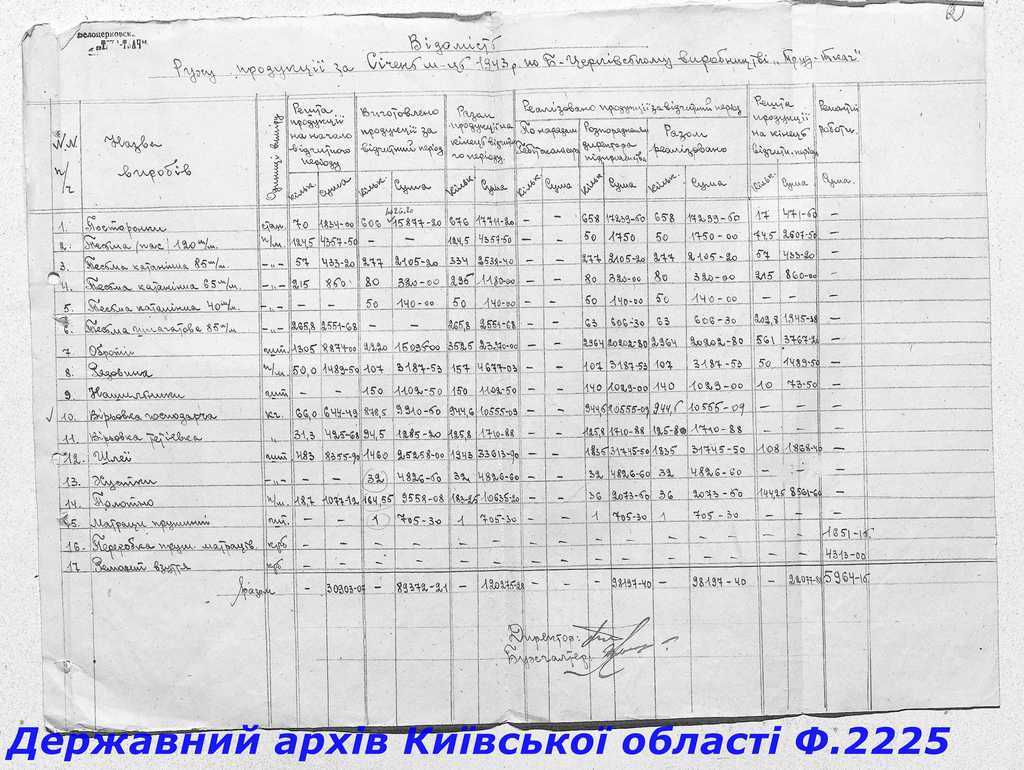 Белоцерковск.
2
Відомість
Руху продукції за Січень м-ць 1943 р. по Б-Церківському виробництві „Труд-Ткач"
N.N. п/ч
Назва виробів
Одиниці виміру
Решта продукції на начало звітного періоду
Виготовлено продукції за звітний період
Разом продукції на кінець звітного періоду.
Реалізовано продукції за звітний період
По нарядам
Розпорядженням директора підприємства
Разом реалізовано
Решта продукції на кінець звітн. періоду
Ремонтні роботи.
Кільк. Сума Кільк. Сума Кільк. Сума Кільк. Сума Кільк. Сума Кільк. Сума Кільк. Сума Сума.
1. Посторонки 70 1234-00 606 15877-20 676 17711-20 - - 658 17239-60 658 17239-60 17 471-60 -
2. Тесьма /пас/ 120 m/m. п/м. 124,5 4357-50 - - 124,5 4357-50 - - 50 1750 50 1750-00 74,5 2607-50 -
3. Тесьма катанінша 85 m/m. -"- 57 433-20 277 2105-20 334 2538-40 - - 277 2105-20 277 2105-20 57 433-20 -
4. Тесьма катанінша 65 m/m. -"- 215 860- 80 320-00 295 1180-00 - - 80 320-00 80 320-00 215 860-00 -
5. Тесьма катанінша 40 m/m. -"- - - 50 140-00 50 140-00 - - 50 140-00 50 140-00 - - -
6. Тесьма шпагатова 85 m/m. -"- 265,8 2551-68 - - 265,8 2551-68 - - 63 606-30 63 606-30 202,8 1945-38 -
7. Оброті шт. 1305 8874-00 2220 15096-00 3525 23970-00 - - 2964 20202-80 2964 20202-80 561 3767-20 -
8. Рядовина п/м. 50,0 1489-50 107 3187-53 157 4677-03 - - 107 3187-53 107 3187-53 50 1489-50 -
9. Нашильники шт - - 150 1102-50 150 1102-50 - - 140 1029-00 140 1029-00 10 73-50 -
10. Вірьовка господарча кг. 66,0 644-49 878,5 9910-60 944,6 10555-09 - - 944,6 10555-09 944,6 10555-09 - - -
11. Вірьовка тетівка " 31,3 425-68 94,5 1285-20 125,8 1710-88 - - 125,8 1710-88 125-80 1710-88 - - -
12. Шлеї шт 483 8355-90 1460 25258-00 1943 33613-90 - - 1835 31745-50 1835 31745-50 108 1868-40 -
13. Хустки -"- - - 32 4826-60 32 4826-60 - - 32 4826-60 32 4826-60 - - -
14. Полотно п/м. 18,7 1077-12 164,55 9558-08 183-25 10635-20 - - 36 2073-60 36 2073-60 144,25 8561-60 -
15. Матраци пружинні шт. - - 1 705-30 1 705-30 - - 1 705-30 1 705-30 - - -
16. Переробка пруж. матраців. крб - - - - - - - - - - - - - - 1651-15
17. Ремонт взуття крб - - - - - - - - - - - - - - 4313-00
Разом - 30303-07 - 89372-21 - 120275-28 - - - 98197-40 - 98197-40 - 22077-88 5964-15
Директор:
Бухгалтер:
Державний архів Київської області Ф.2225